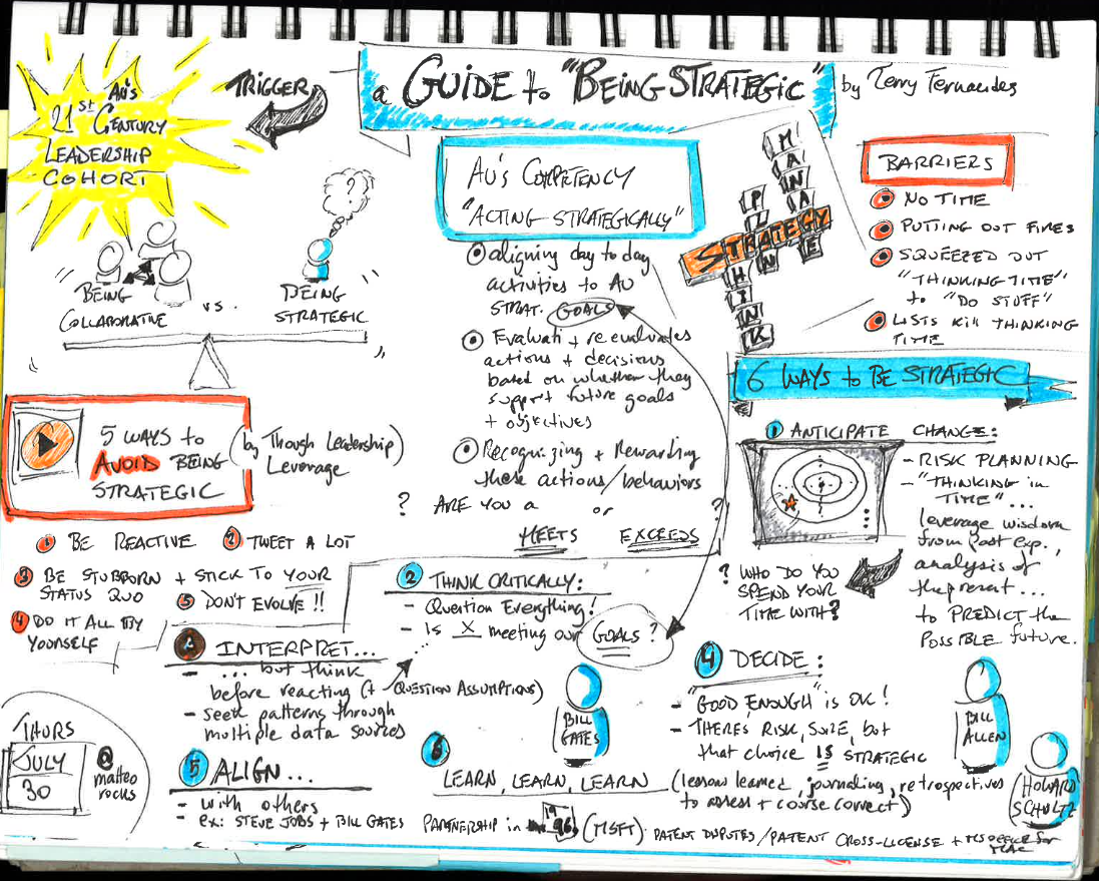 AU's
21st CENTURY
LEADERSHIP
COHORT
TRIGGER
a GUIDE to "BEING STRATEGIC"
by Terry Fernandes
BEING
COLLABORATIVE
vs.
?
BEING
STRATEGIC
AU'S COMPETENCY
"ACTING STRATEGICALLY"
aligning day to day
activities to AU
STRAT. GOALS
Evaluati + re evaluates
actions + decisions
based on whether they
support future goals
+ objectives
Recognizing + Rewarding
those actions/behaviors
? ARE YOU a or ?
MEETS EXCEEDS
MANAGE
PLAN
STRATEGY
THINK
BARRIERS
NO TIME
PUTTING OUT FIRES
SQUEEZED OUT
"THINKING TIME"
to "DO STUFF"
LISTS Kill THINKING
TIME
5 WAYS to
AVOID BEING
STRATEGIC
(by Though Leadership)
Leverage
1 BE REACTIVE
2 TWEET A LOT
3 BE STUBBORN + STICK TO YOUR
STATUS QUO
5 DON'T EVOLVE!!
4 DO IT ALL BY
YOURSELF
6 WAYS to BE STRATEGIC
1 ANTICIPATE CHANGE:
- RISK PLANNING
- "THINKING in
TIME"...
leverage wisdom
from Past Exp.,
analysis of
the present...
to PREDICT the
Possible future.
? WHO DO YOU
SPEND YOUR
TIME WITH?
2 THINK CRITICALLY:
- Question Everything!
- Is X meeting our GOALS?
INTERPRET...
- ... but think
before reacting (+ QUESTION ASSUMPTIONS)
- seek patterns through
multiple data sources
4 DECIDE:
- "GOOD ENOUGH" is OK!
- THERES RISK, SURE, but
that choice IS STRATEGIC
BILL
GATES
BILL
ALLEN
HOWARD
SCHULTZ
5 ALIGN...
- with others
- ex: STEVE JOBS + BILL GATES PARTNERSHIP in 1996 (MSFT): PATENT DISPUTES/PATENT CROSS-LICENSE + MS OFFICE for
MAC
6
LEARN, LEARN, LEARN (lesson learned, journaling, retrospectives
to assess + course correct)
THURS
JULY
30
@
matteo
rocks